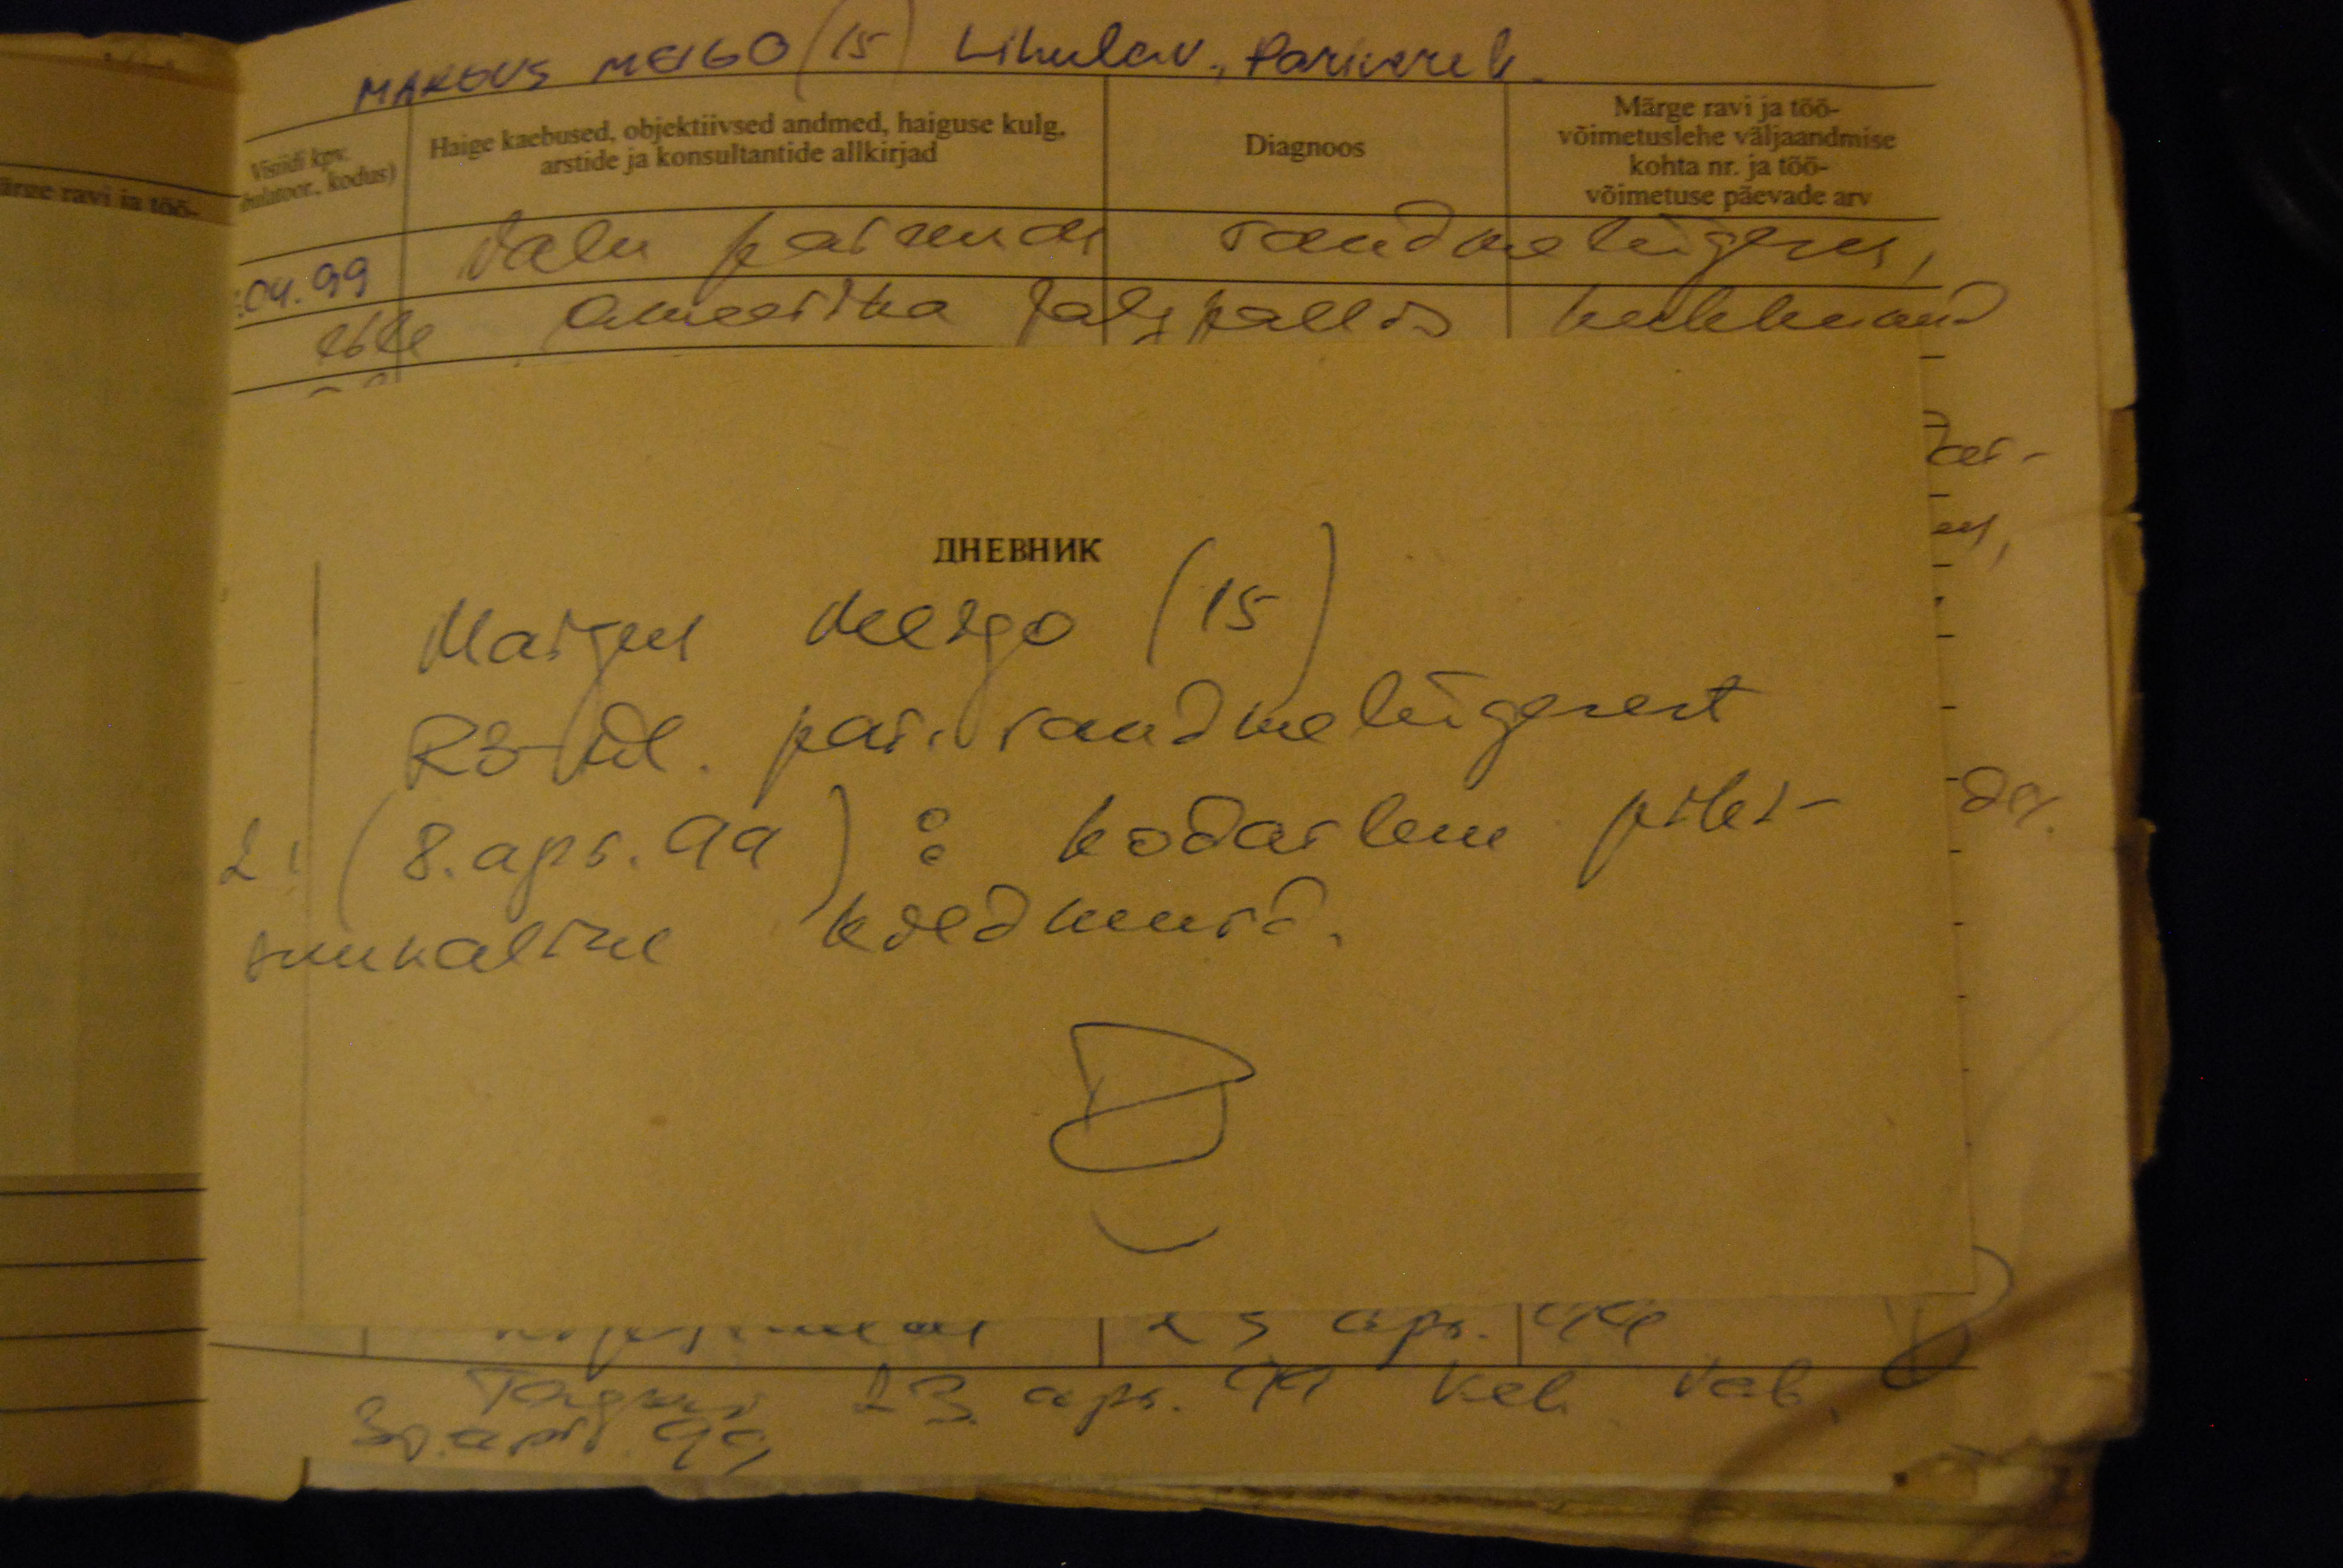 MARGUS MEIGO (15) Lihula v., Parivere k.
ärge ravi ja töö-
Visiidi kpv.
bulatoor., kodus)
Haige kaebused, objektiivsed andmed, haiguse kulg,
arstide ja konsultantide allkirjad
Diagnoos
Märge ravi ja töö-
võimetuslehe väljaandmise
kohta nr. ja töö-
võimetuse päevade arv
.04.99 Valu paremas randmeliigeses,
eile ameerika jalgpallis kukkunud
ДНЕВНИК
Margus Meigo (15)
RB-pil. par. randmeliigesest
(8. apr. 99) : kodarluu piki-
suunaline kildmurd.
23 apr. 99
Tagasi 23. apr. 99 kell
30. apr. 99